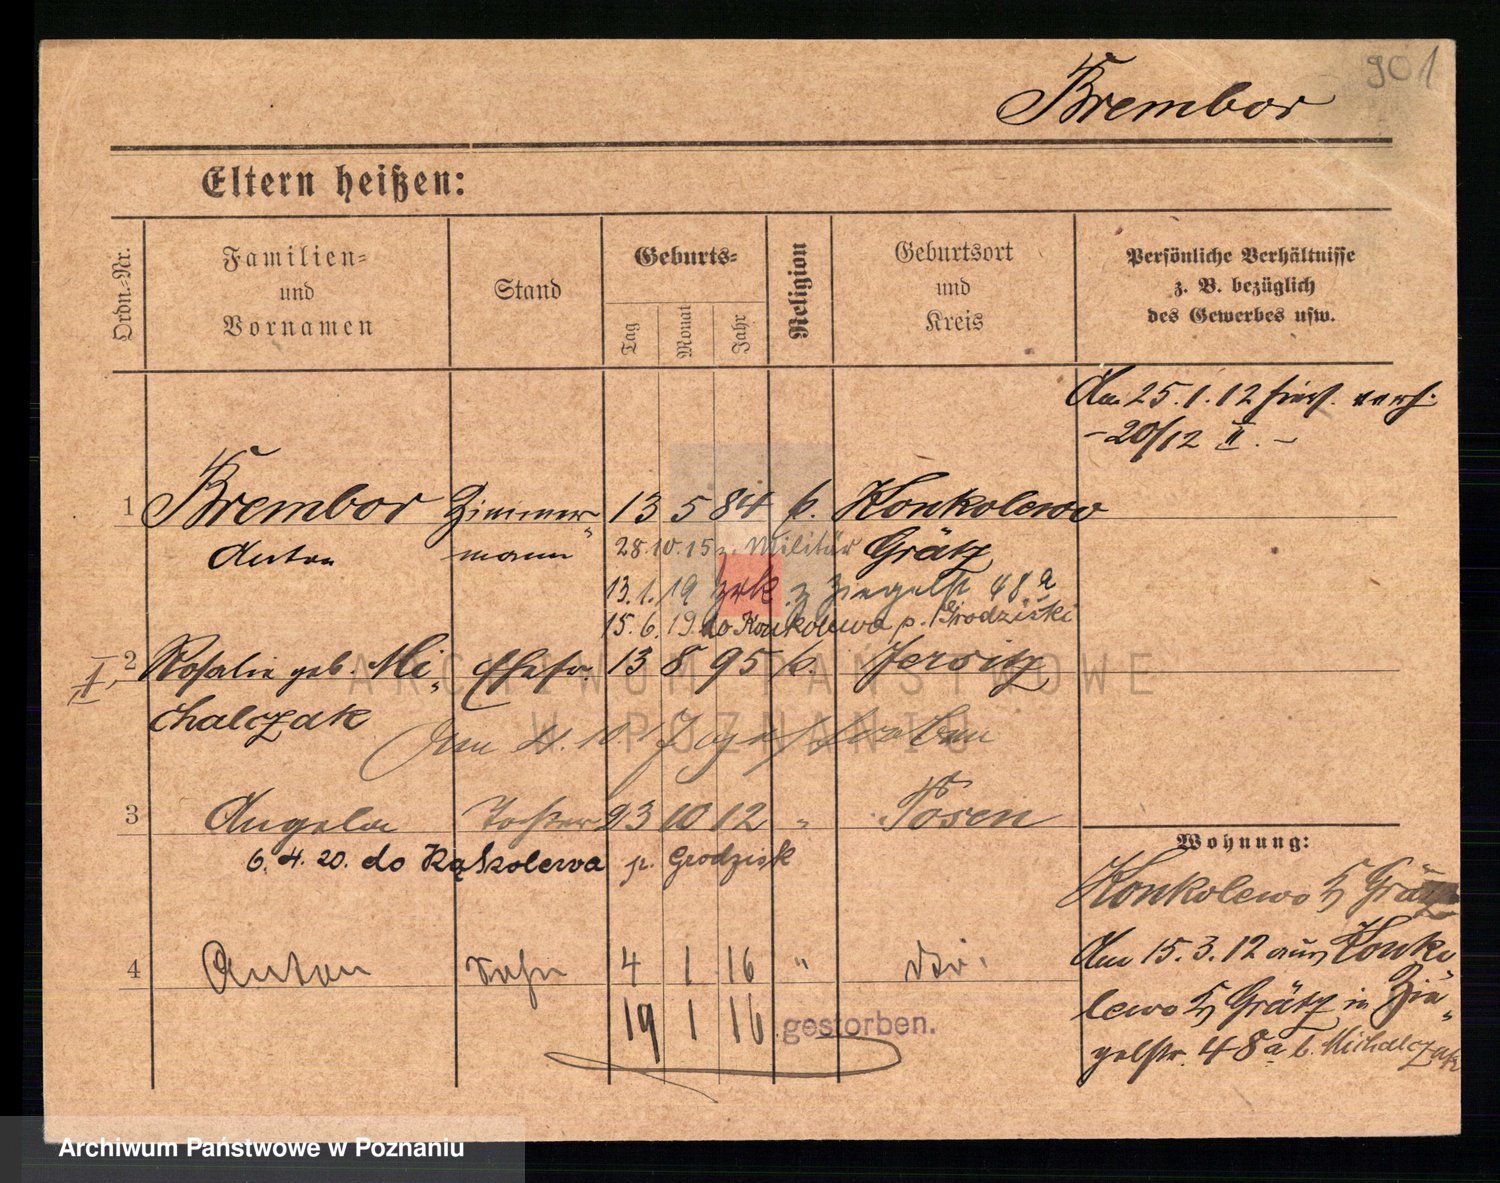 901
Brembor
Eltern heißen:
Ordn.-Nr.
Familien-
und
Vornamen
Stand
Geburts-
Tag
Monat
Jahr
Religion
Geburtsort
und
Kreis
Persönliche Verhältnisse
z. B. bezüglich
des Gewerbes usw.
Am 25.1.12 hier. verh.
- 20/12 II. -
1 Brembor Zimmer- 13 5 84 k. Konkolewo
Anton mann Grätz
28.10.15 z. Militär
13.1.19 zrk. z Ziegelst 48a
15.6.19. do Konkolewa p. Grodziski
2 Rosalie geb. Mi- Ehefr. 13 8 95 k. Jersitz
chalczak
Am 4. 10 gestorben
3 Angela Tochter 23 10 12 " Posen
6.4.20. do Kąkolewa p. Grodzisk
4 Anton Sohn 4 1 16 "
19 1 16 gestorben.
Wohnung:
Konkolewo Grätz
Am 15.3.12 aus Konko
lewo Grätz in Zie-
gelstr. 48a b. Michalczak
ARCHIWUM PAŃSTWOWE
W POZNANIU
Archiwum Państwowe w Poznaniu